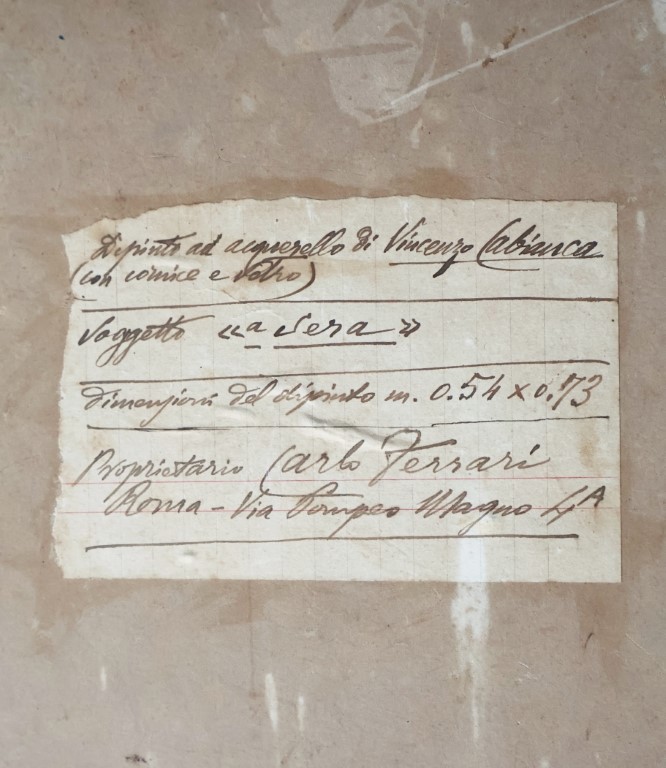 Dipinto ad acquerello di Vincenzo Cabianca
(con cornice e vetro)
Soggetto «a Sera»
dimensioni del dipinto m. 0.54 x 0.73
Proprietario Carlo Ferrari
Roma - Via Pompeo Magno 4A